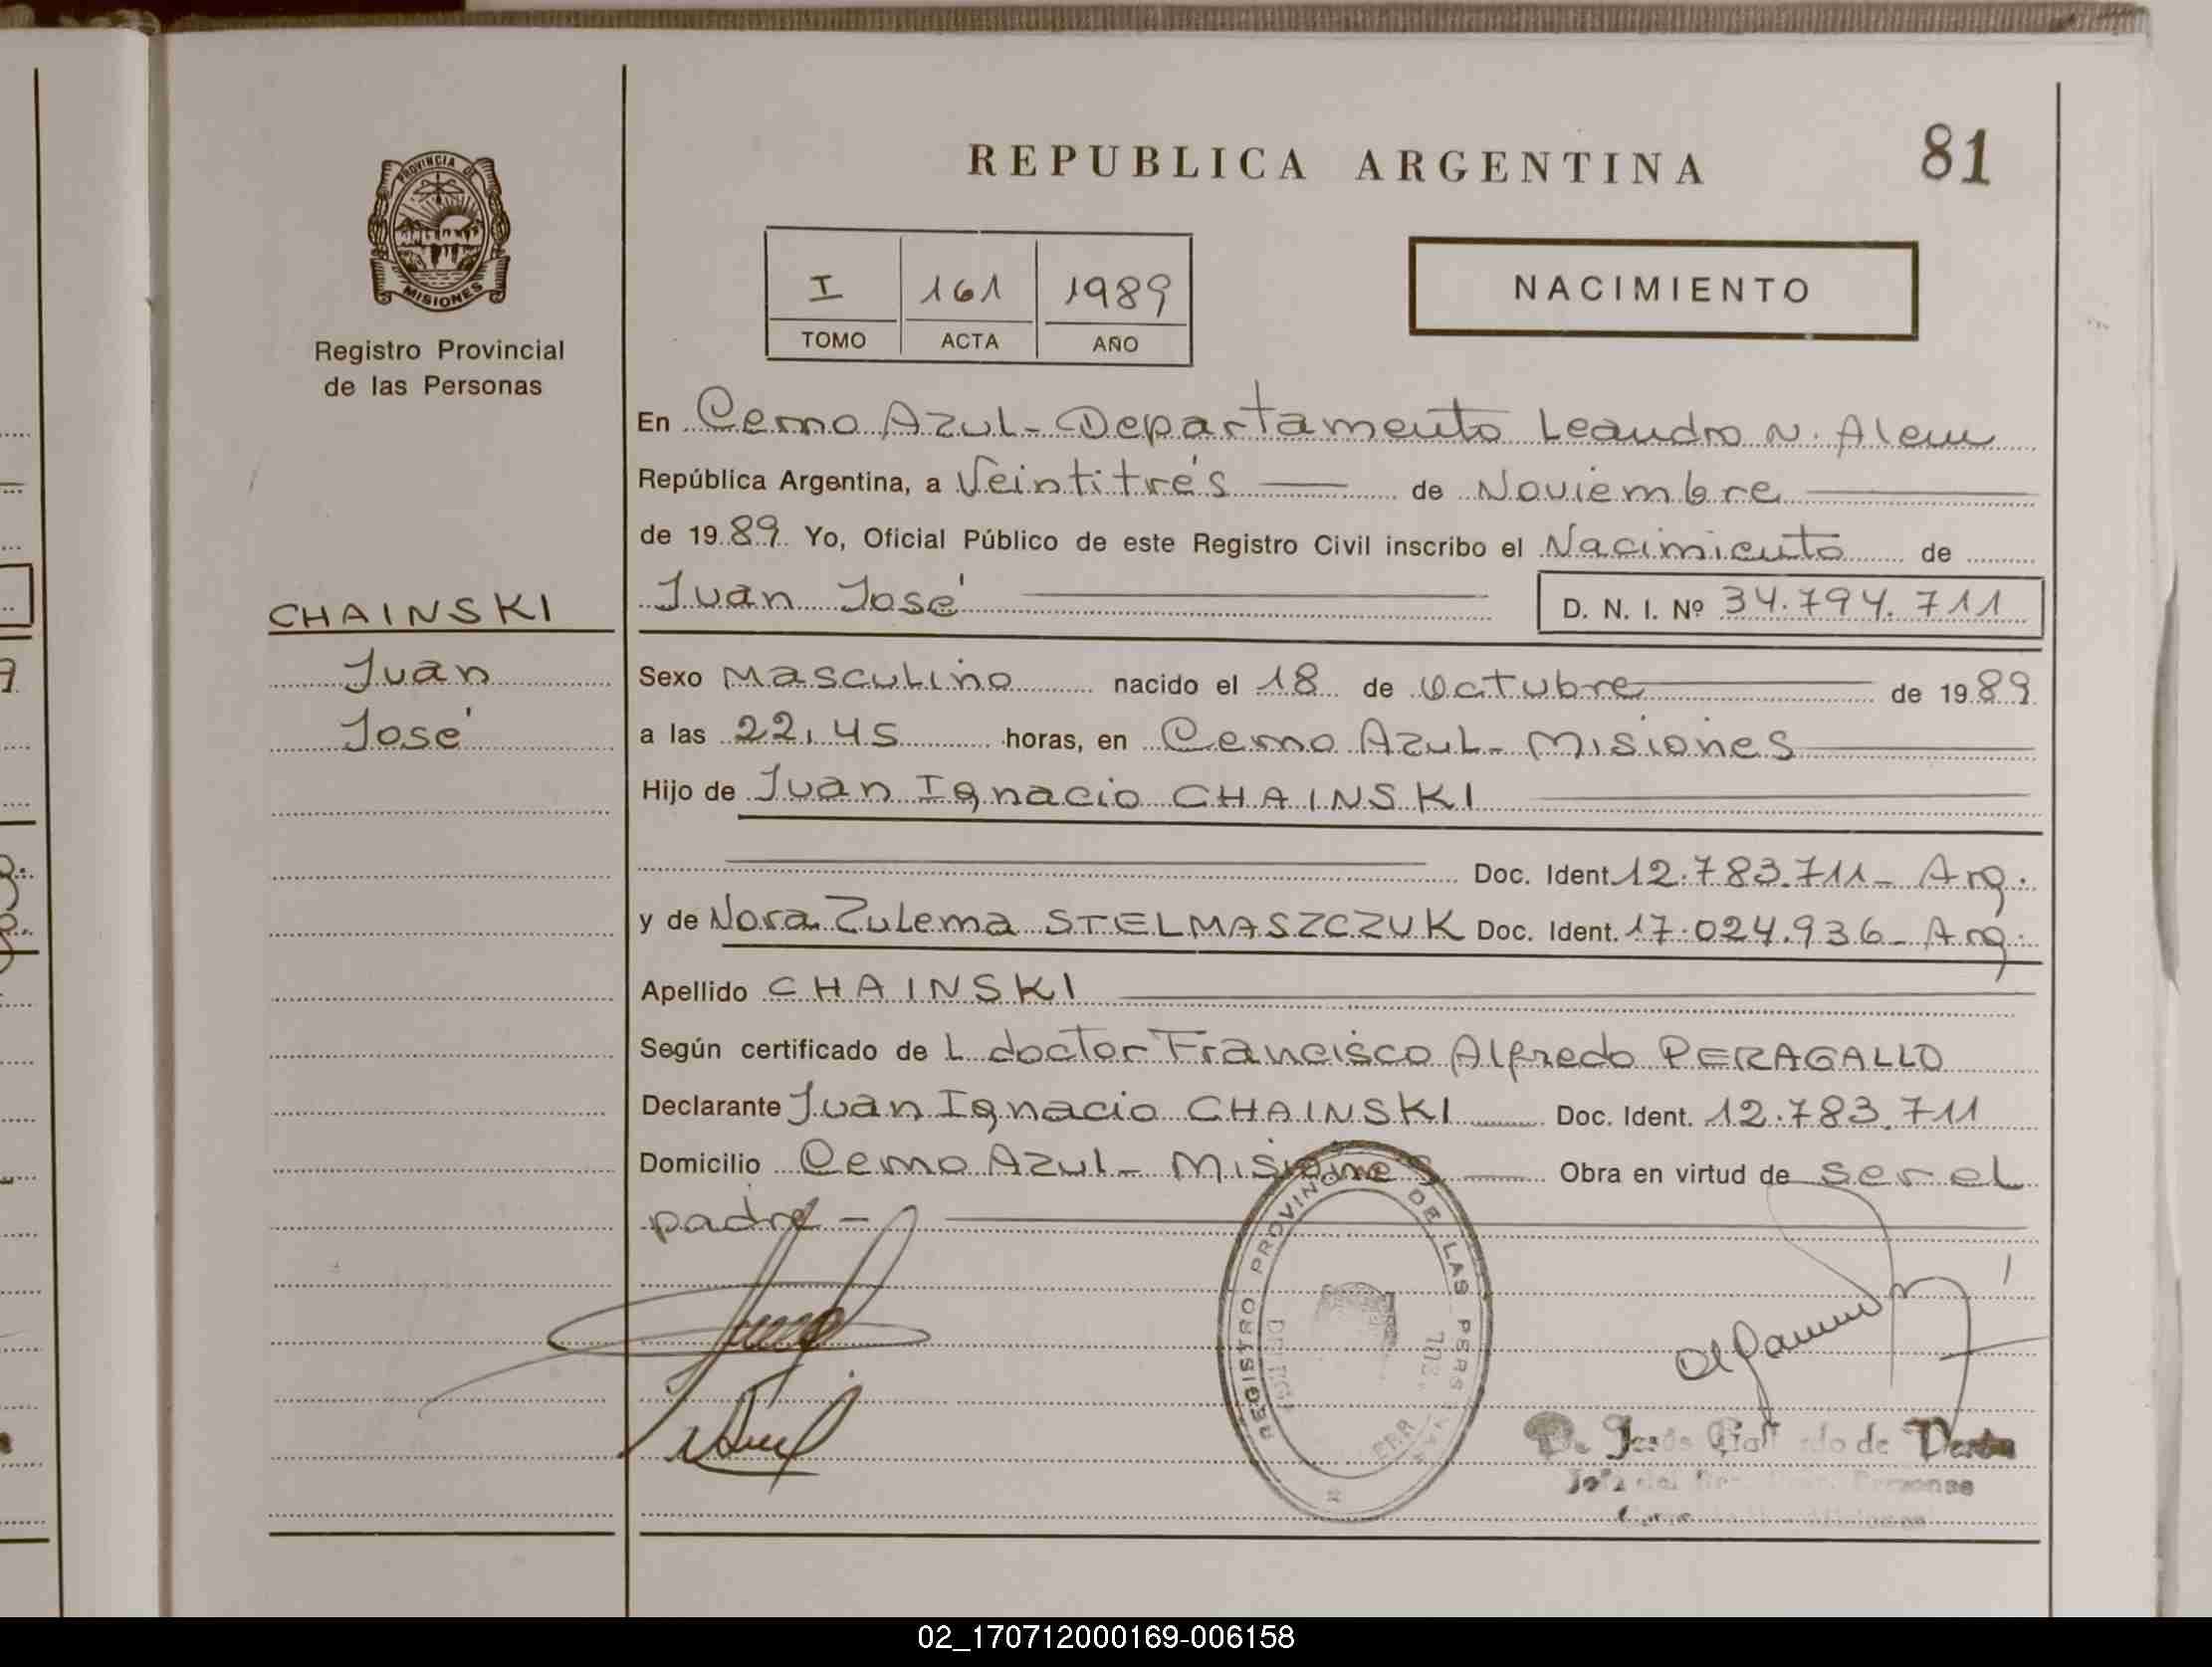 REPUBLICA ARGENTINA
81
PROVINCIA DE
MISIONES
Registro Provincial
de las Personas
I 161 1989
TOMO ACTA AÑO
NACIMIENTO
En Cerro Azul - Departamento Leandro N. Alem
República Argentina, a Veintitrés de Noviembre
de 1989 Yo, Oficial Público de este Registro Civil inscribo el Nacimiento de
Juan José D. N. I. Nº 34.794.711
CHAINSKI
Juan
José
Sexo Masculino nacido el 18 de Octubre de 1989
a las 22,45 horas, en Cerro Azul - Misiones
Hijo de Juan Ignacio CHAINSKI
Doc. Ident. 12.783.711 - Arg.
y de Nora Zulema STELMASZCZUK Doc. Ident. 17.024.936 - Arg.
Apellido CHAINSKI
Según certificado de L doctor Francisco Alfredo PERAGALLO
Declarante Juan Ignacio CHAINSKI Doc. Ident. 12.783.711
Domicilio Cerro Azul - Misiones Obra en virtud de ser el
padre -
REGISTRO PROVINCIAL DE LAS PERSONAS
02_170712000169-006158